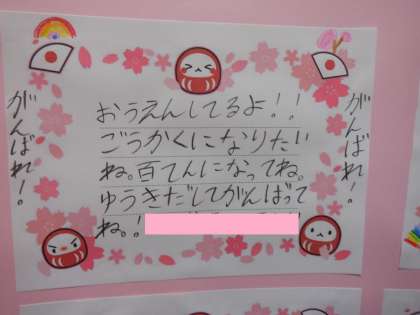 がんばれ！
おうえんしてるよ！！
ごうかくになりたい
ね。百てんになってね。
ゆうきだしてがんばって
ね。！
がんばれ！